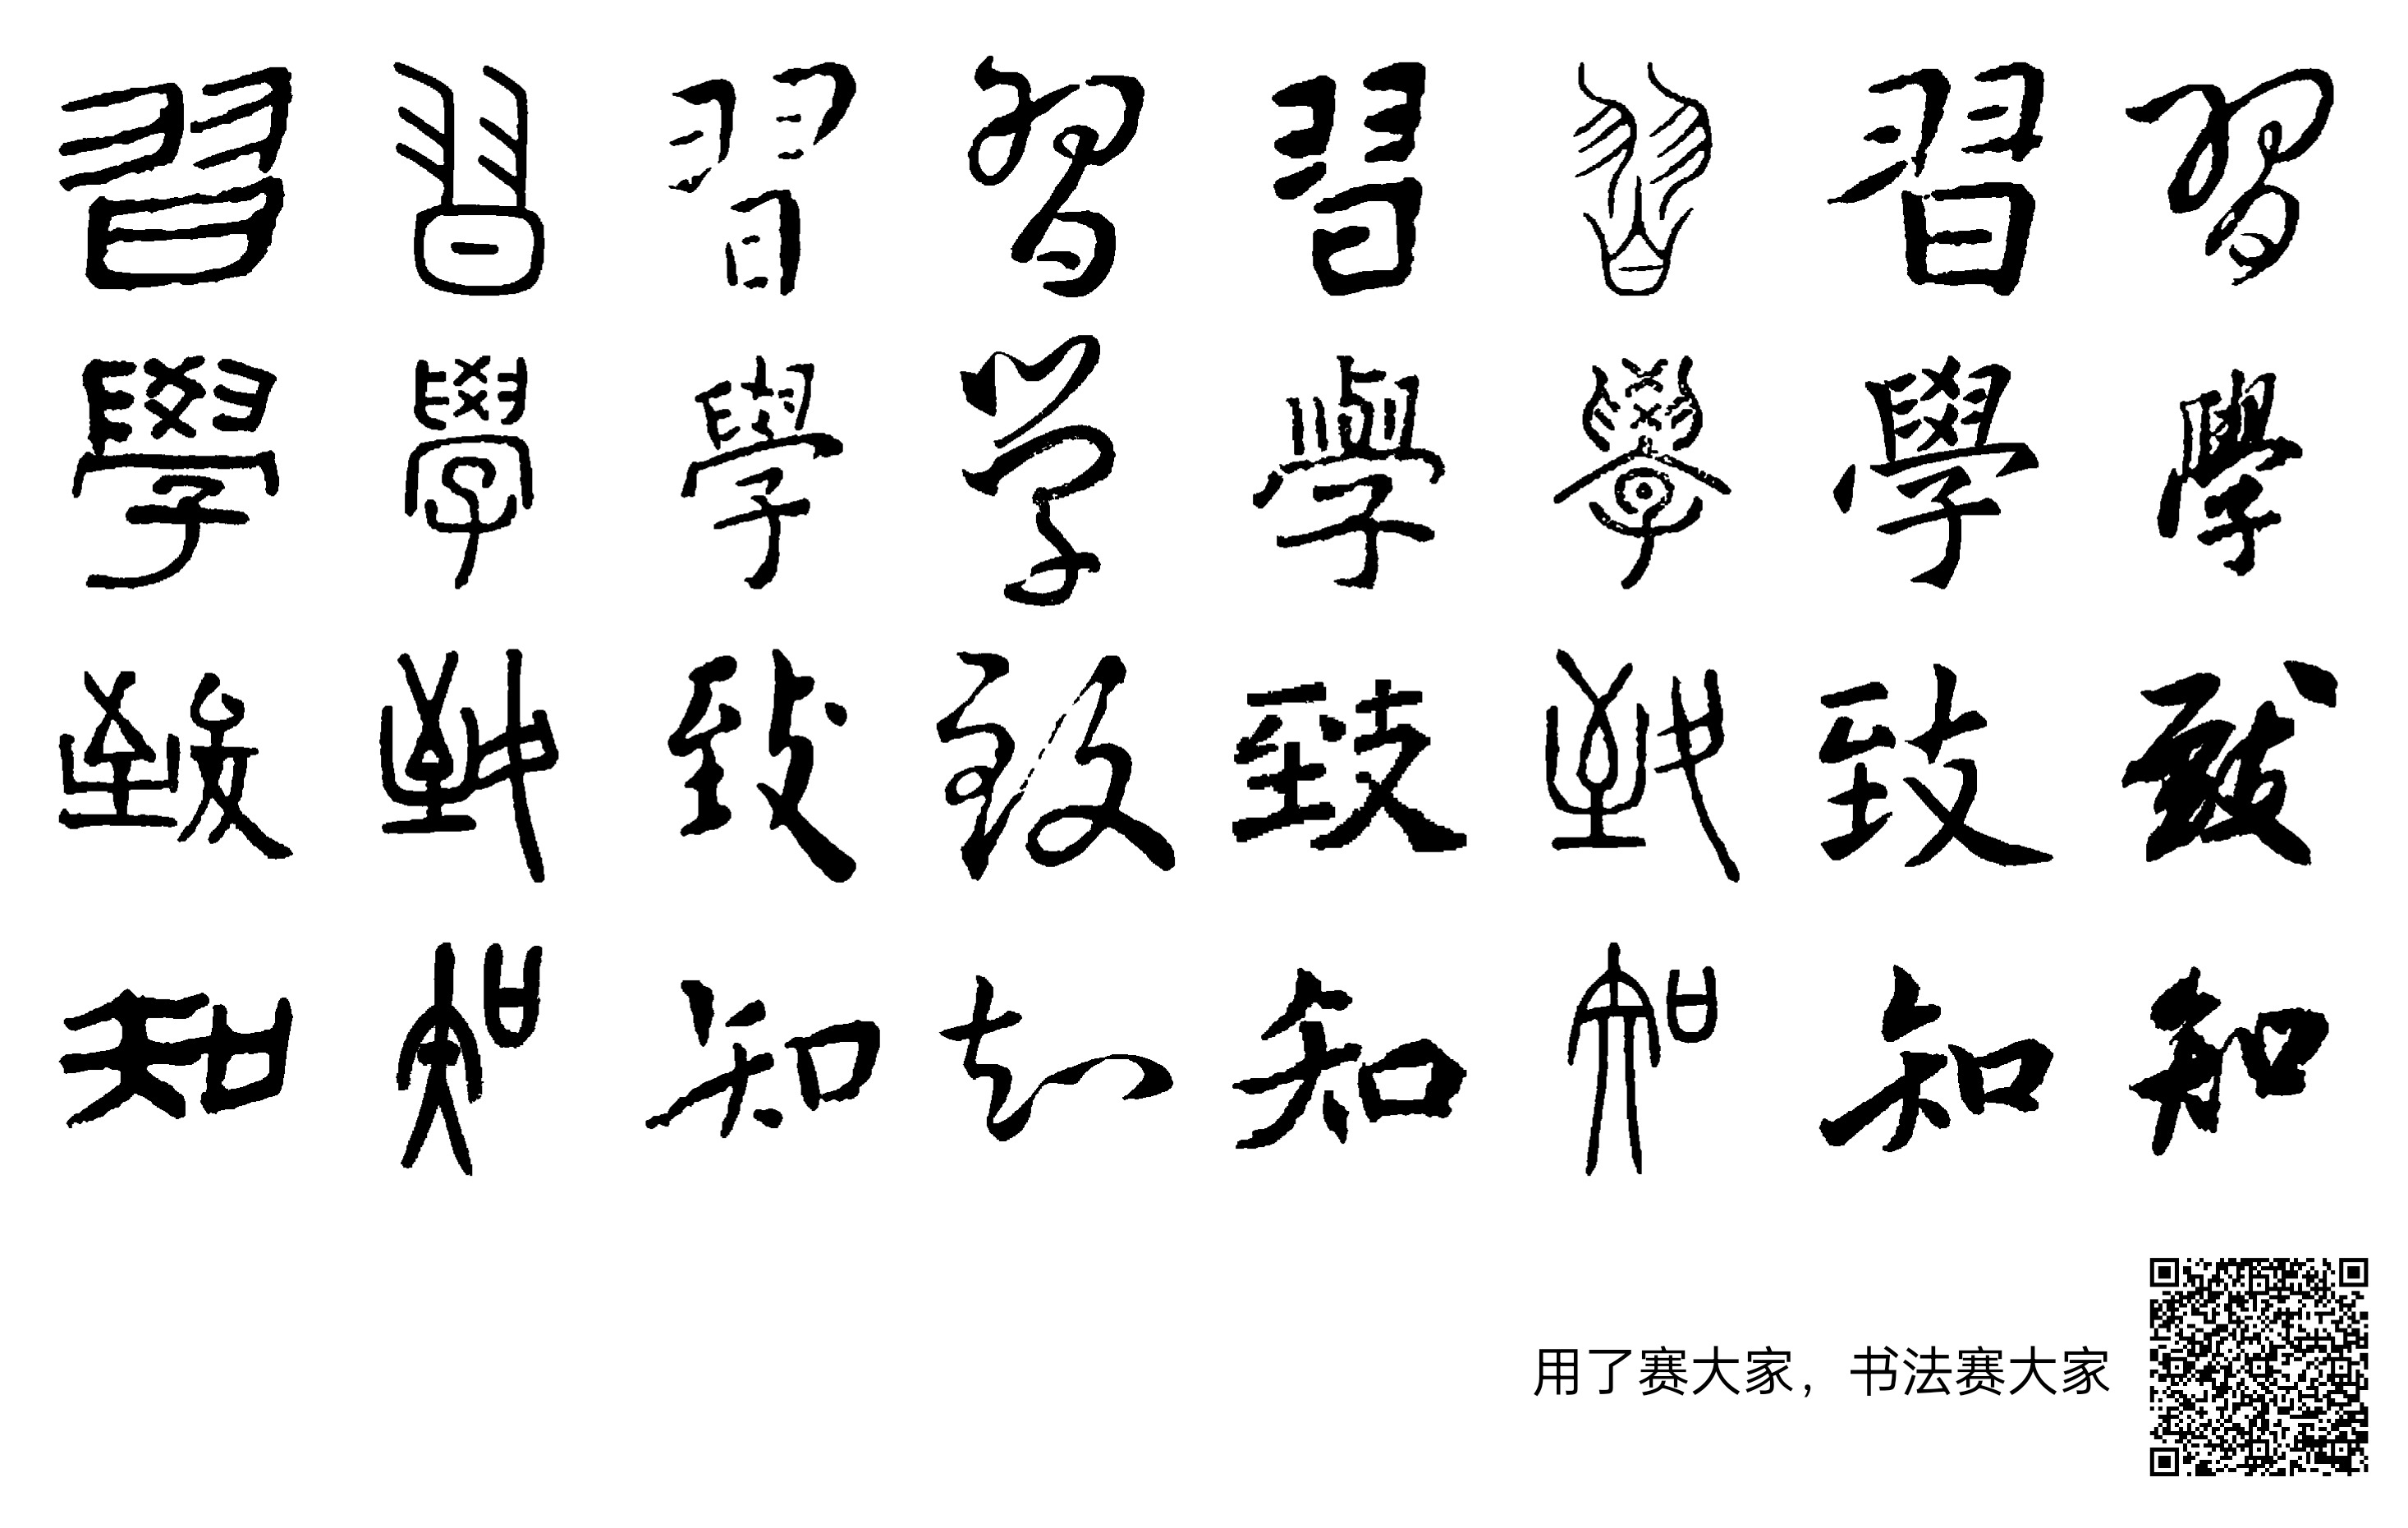 習習習習習習習習
學學學学學學學學
致致致致致致致致
知知知知知知知知
用了赛大家，书法赛大家